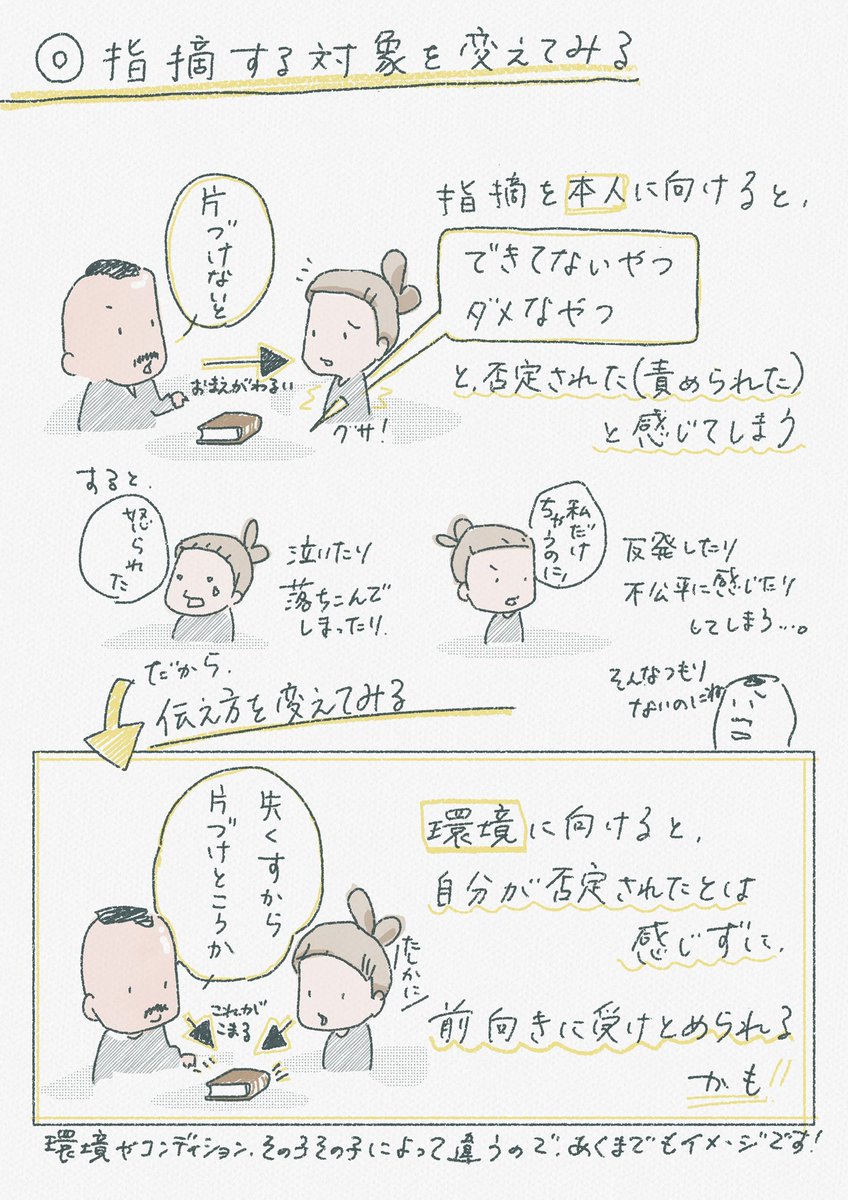 ◎ 指摘する対象を変えてみる
片づけないと
おまえがわるい
グサ!
指摘を本人に向けると、
できてないやつ
ダメなやつ
と、否定された(責められた)
と感じてしまう
すると、
怒られた
泣いたり
落ちこんで
しまったり、
私だけ
ちゃうのに
反発したり
不公平に感じたり
してしまう…。
そんなつもり
ないのにね
だから、
伝え方を変えてみる
失くすから
片づけとこうか
これがこまる
たしかに
環境に向けると、
自分が否定されたとは
感じずに、
前向きに受けとめられる
かも!!
環境やコンディション、その子その子によって違うので、あくまでもイメージです!